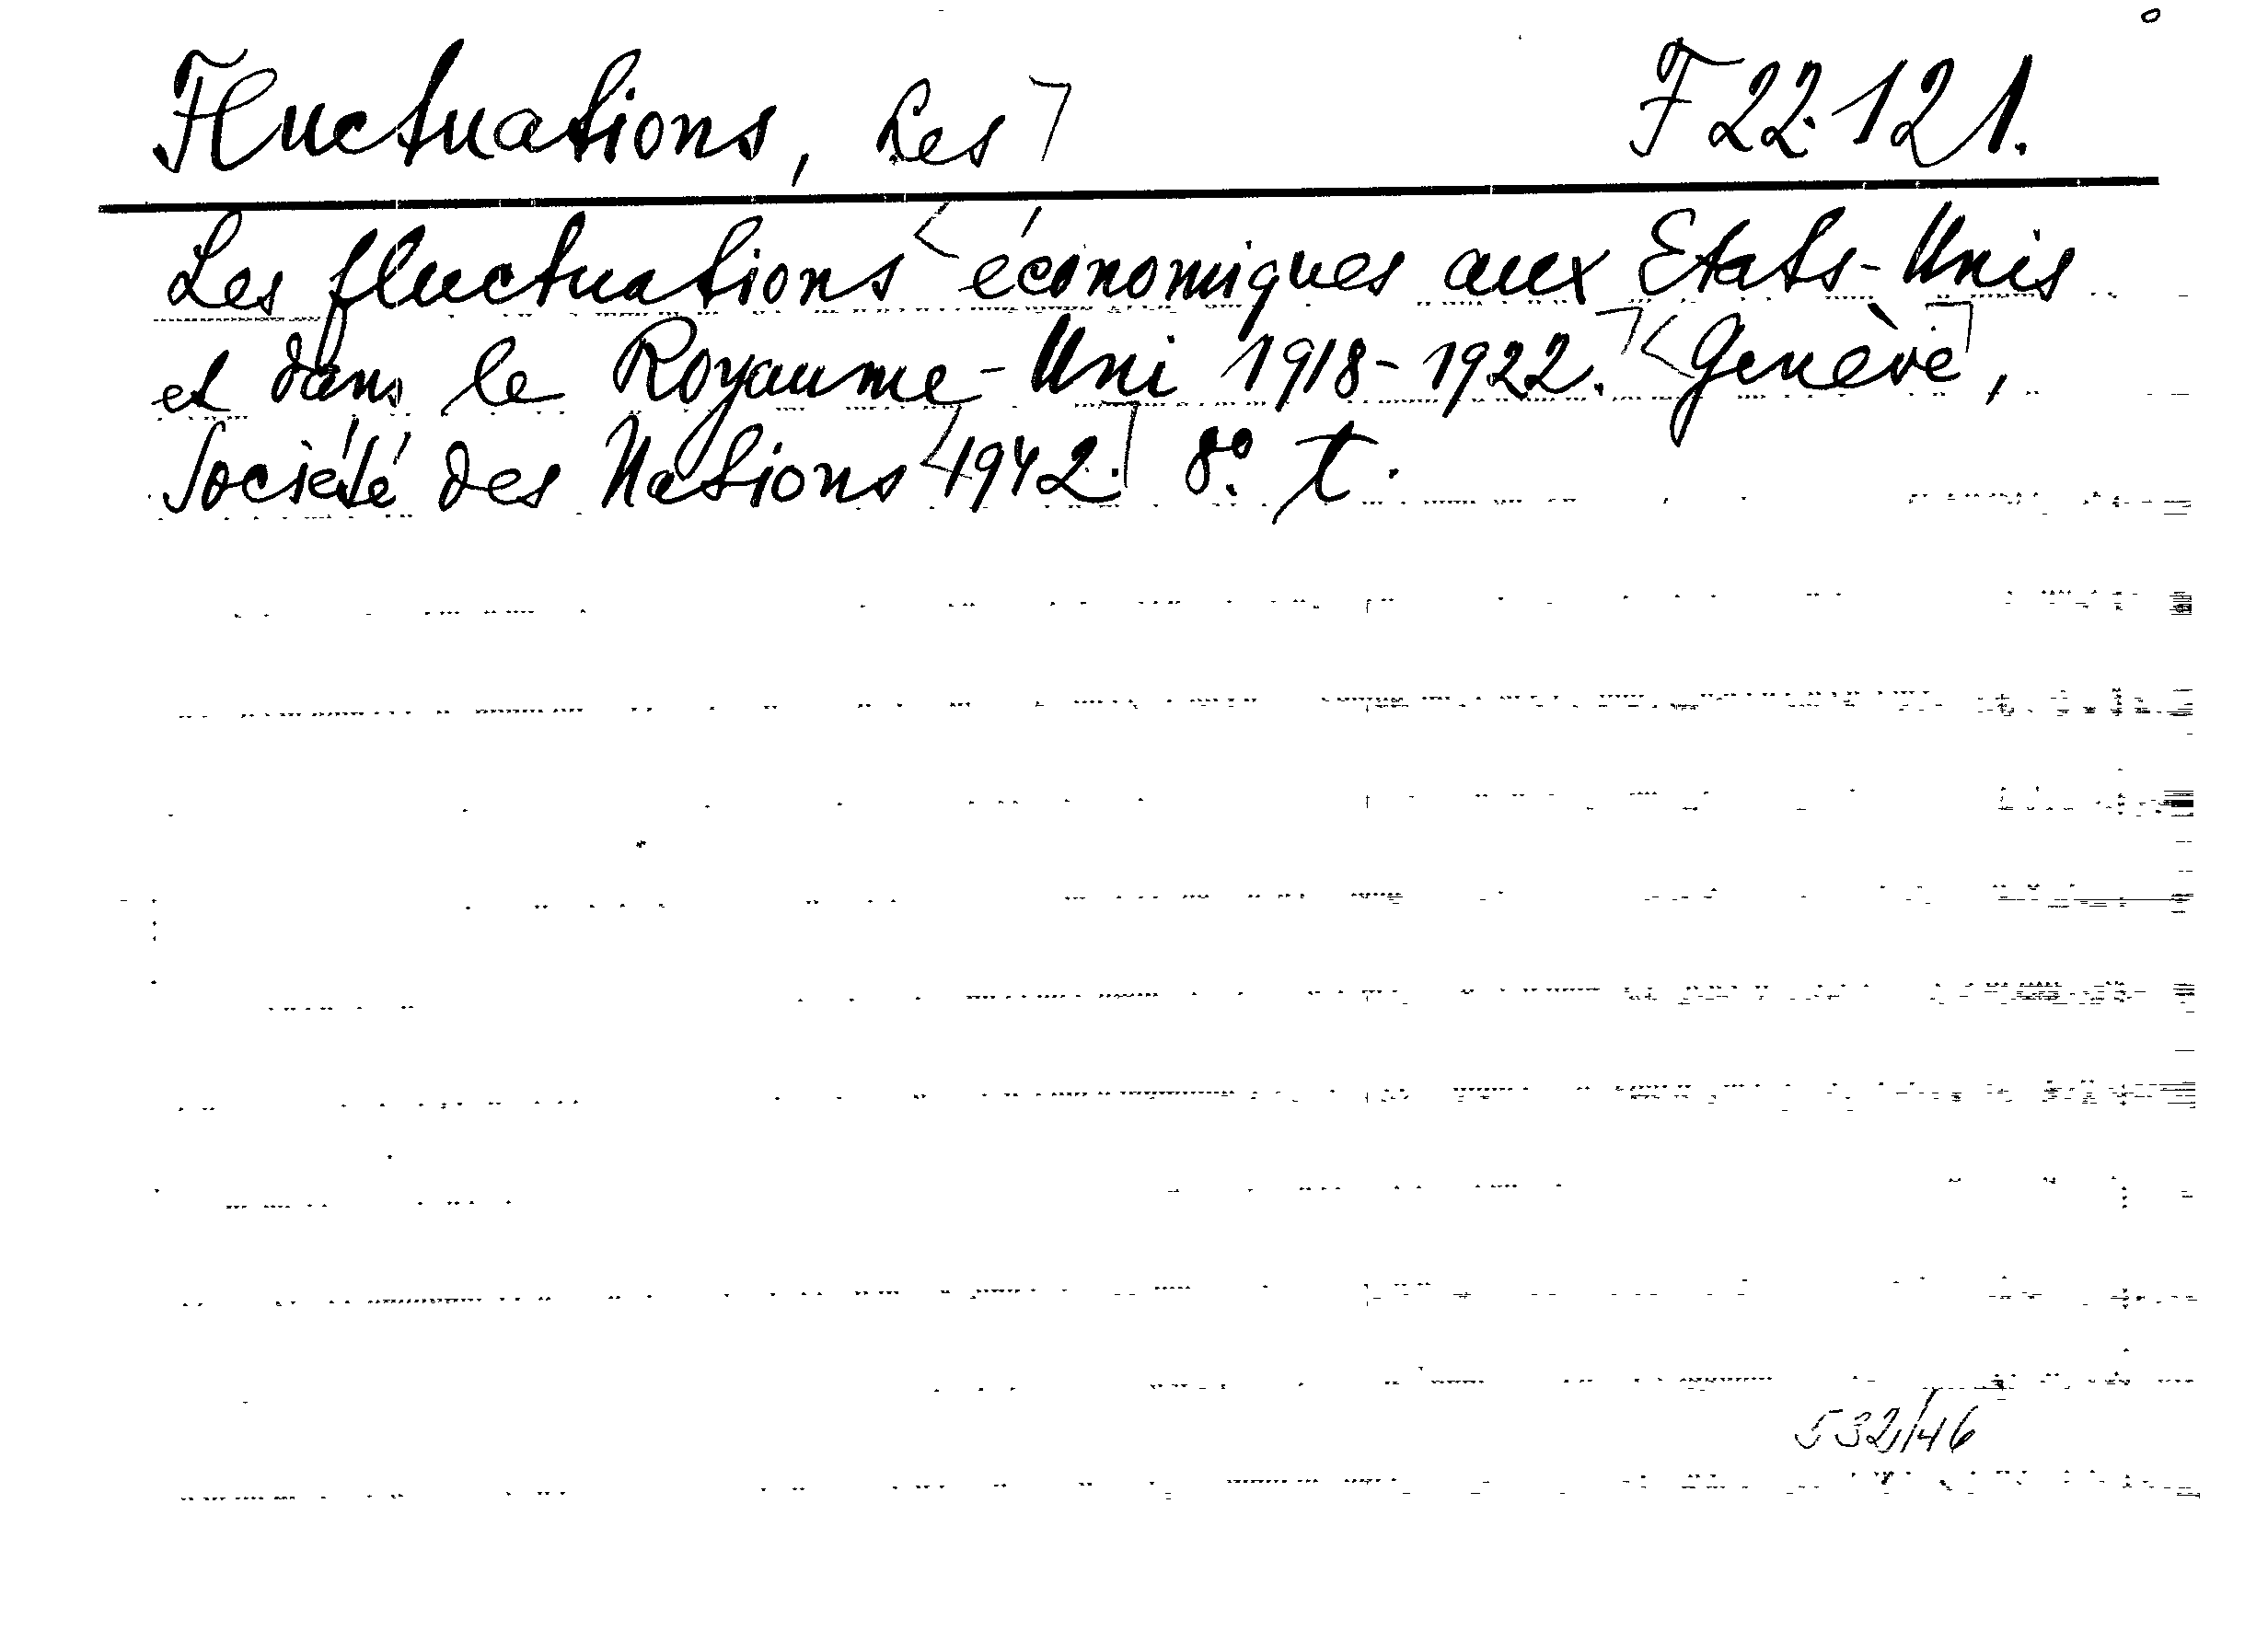 Fluctuations, Les F 22.121.
Les fluctuations économiques aux Etats-Unis
et dans le Royaume-Uni 1918-1922. Genève,
Société des Nations 1942. 8° t.
532/46